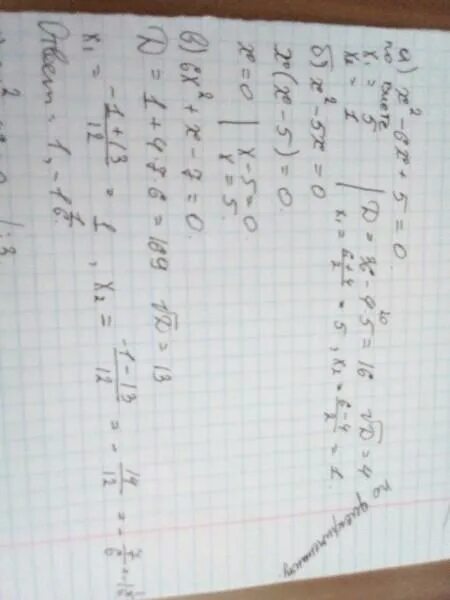 а) x² - 6x + 5 = 0.
по Виете | D = 36 - 4·5 = 16 √D = 4
x₁ = 5
x₂ = 1 | x₁ = (6+4)/2 = 5, x₂ = (6-4)/2 = 1.
б) x² - 5x = 0
x(x - 5) = 0.
x = 0 | x - 5 = 0
x = 5.
в) 6x² + x - 7 = 0.
D = 1 + 4·7·6 = 169 √D = 13
x₁ = (-1+13)/12 = 1, x₂ = (-1-13)/12 = -14/12 = -7/6 = -1 1/6
Ответ = 1, -1 1/6.